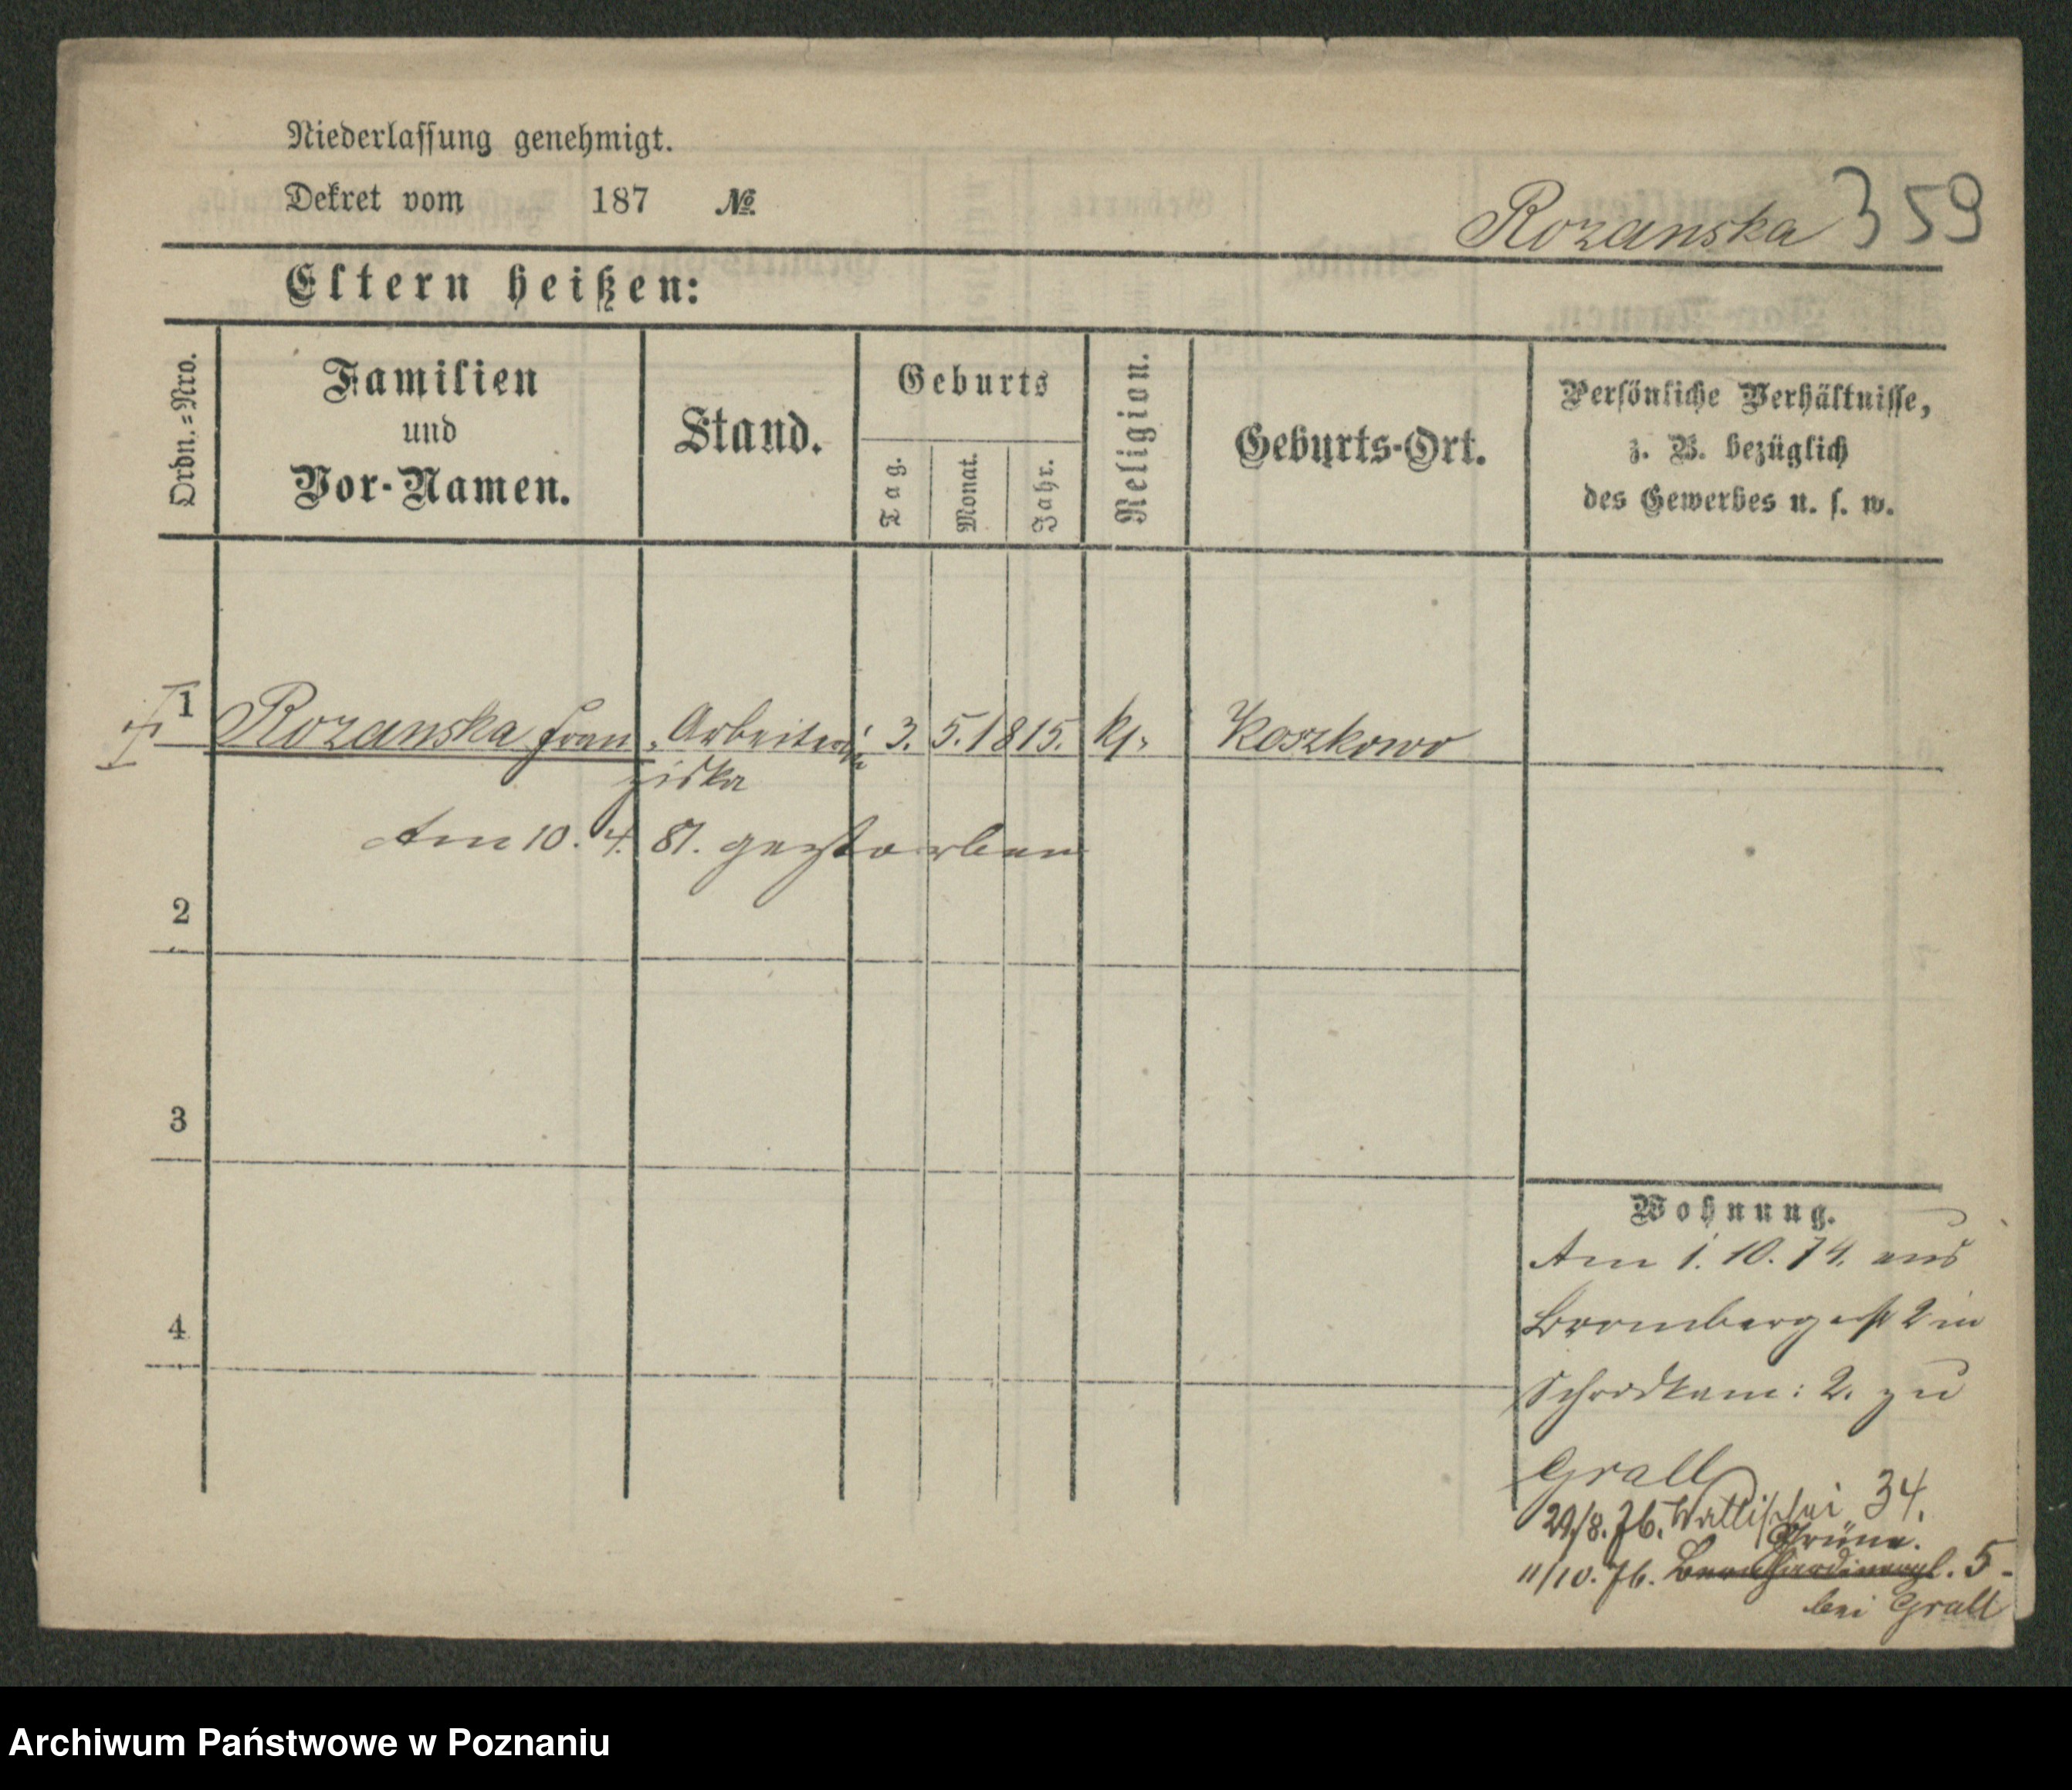 Niederlassung genehmigt.
Dekret vom 187 №
Rozanska 359
Eltern heißen:
Ordn.=Nro.
Familien
und
Vor-Namen.
Stand.
Geburts
Tag.
Monat.
Jahr.
Religion.
Geburts-Ort.
Persönliche Verhältnisse,
z. B. bezüglich
des Gewerbes u. s. w.
1 Rozanska Fran Arbeiterin 3. 5. 1815. k. Koszkowo
ziska
Am 10. 4. 81. gestorben
2
3
4
Wohnung.
Am 1. 10. 74. aus
Brombergerst 2 in
Schrodkam: 2. zu
Grall
29/8. 76. Wallischei 34.
Grüne.
11/10. 76. Bernhardinerpl. 5.
bei Grall
Archiwum Państwowe w Poznaniu